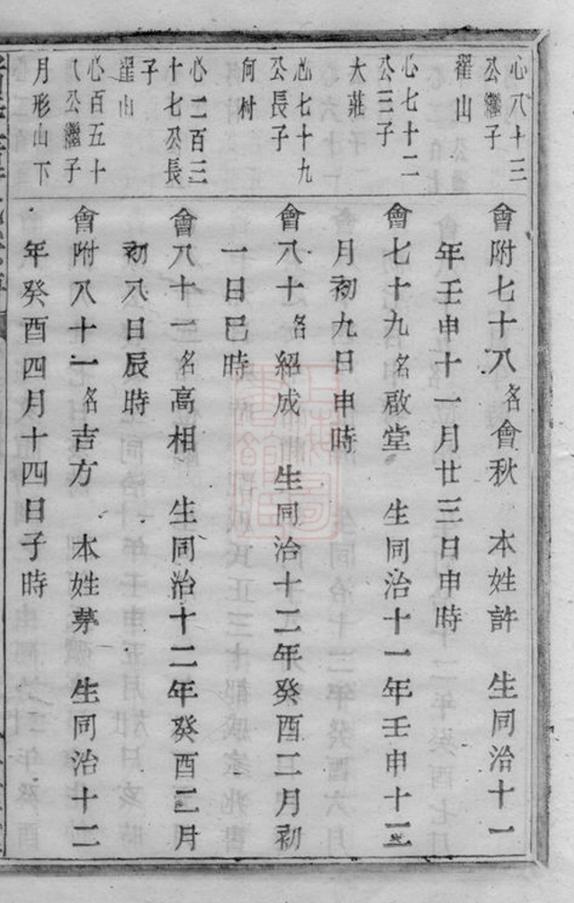 心八十三
公繼子
翟山
會附七十八名會秋 本姓許 生同治十一
年壬申十一月廿三日申時
心七十二
公三子
大莊
會七十九名啟堂 生同治十一年壬申十二
月初九日申時
心七十九
公長子
何村
會八十名紹成 生同治十二年癸酉二月初
一日巳時
心二百三
十七公長
子
翟山
會八十一名高相 生同治十二年癸酉二月
初八日辰時
心百五十
八公繼子
月形山下
會附八十一名吉方 本姓茅 生同治十二
年癸酉四月十四日子時